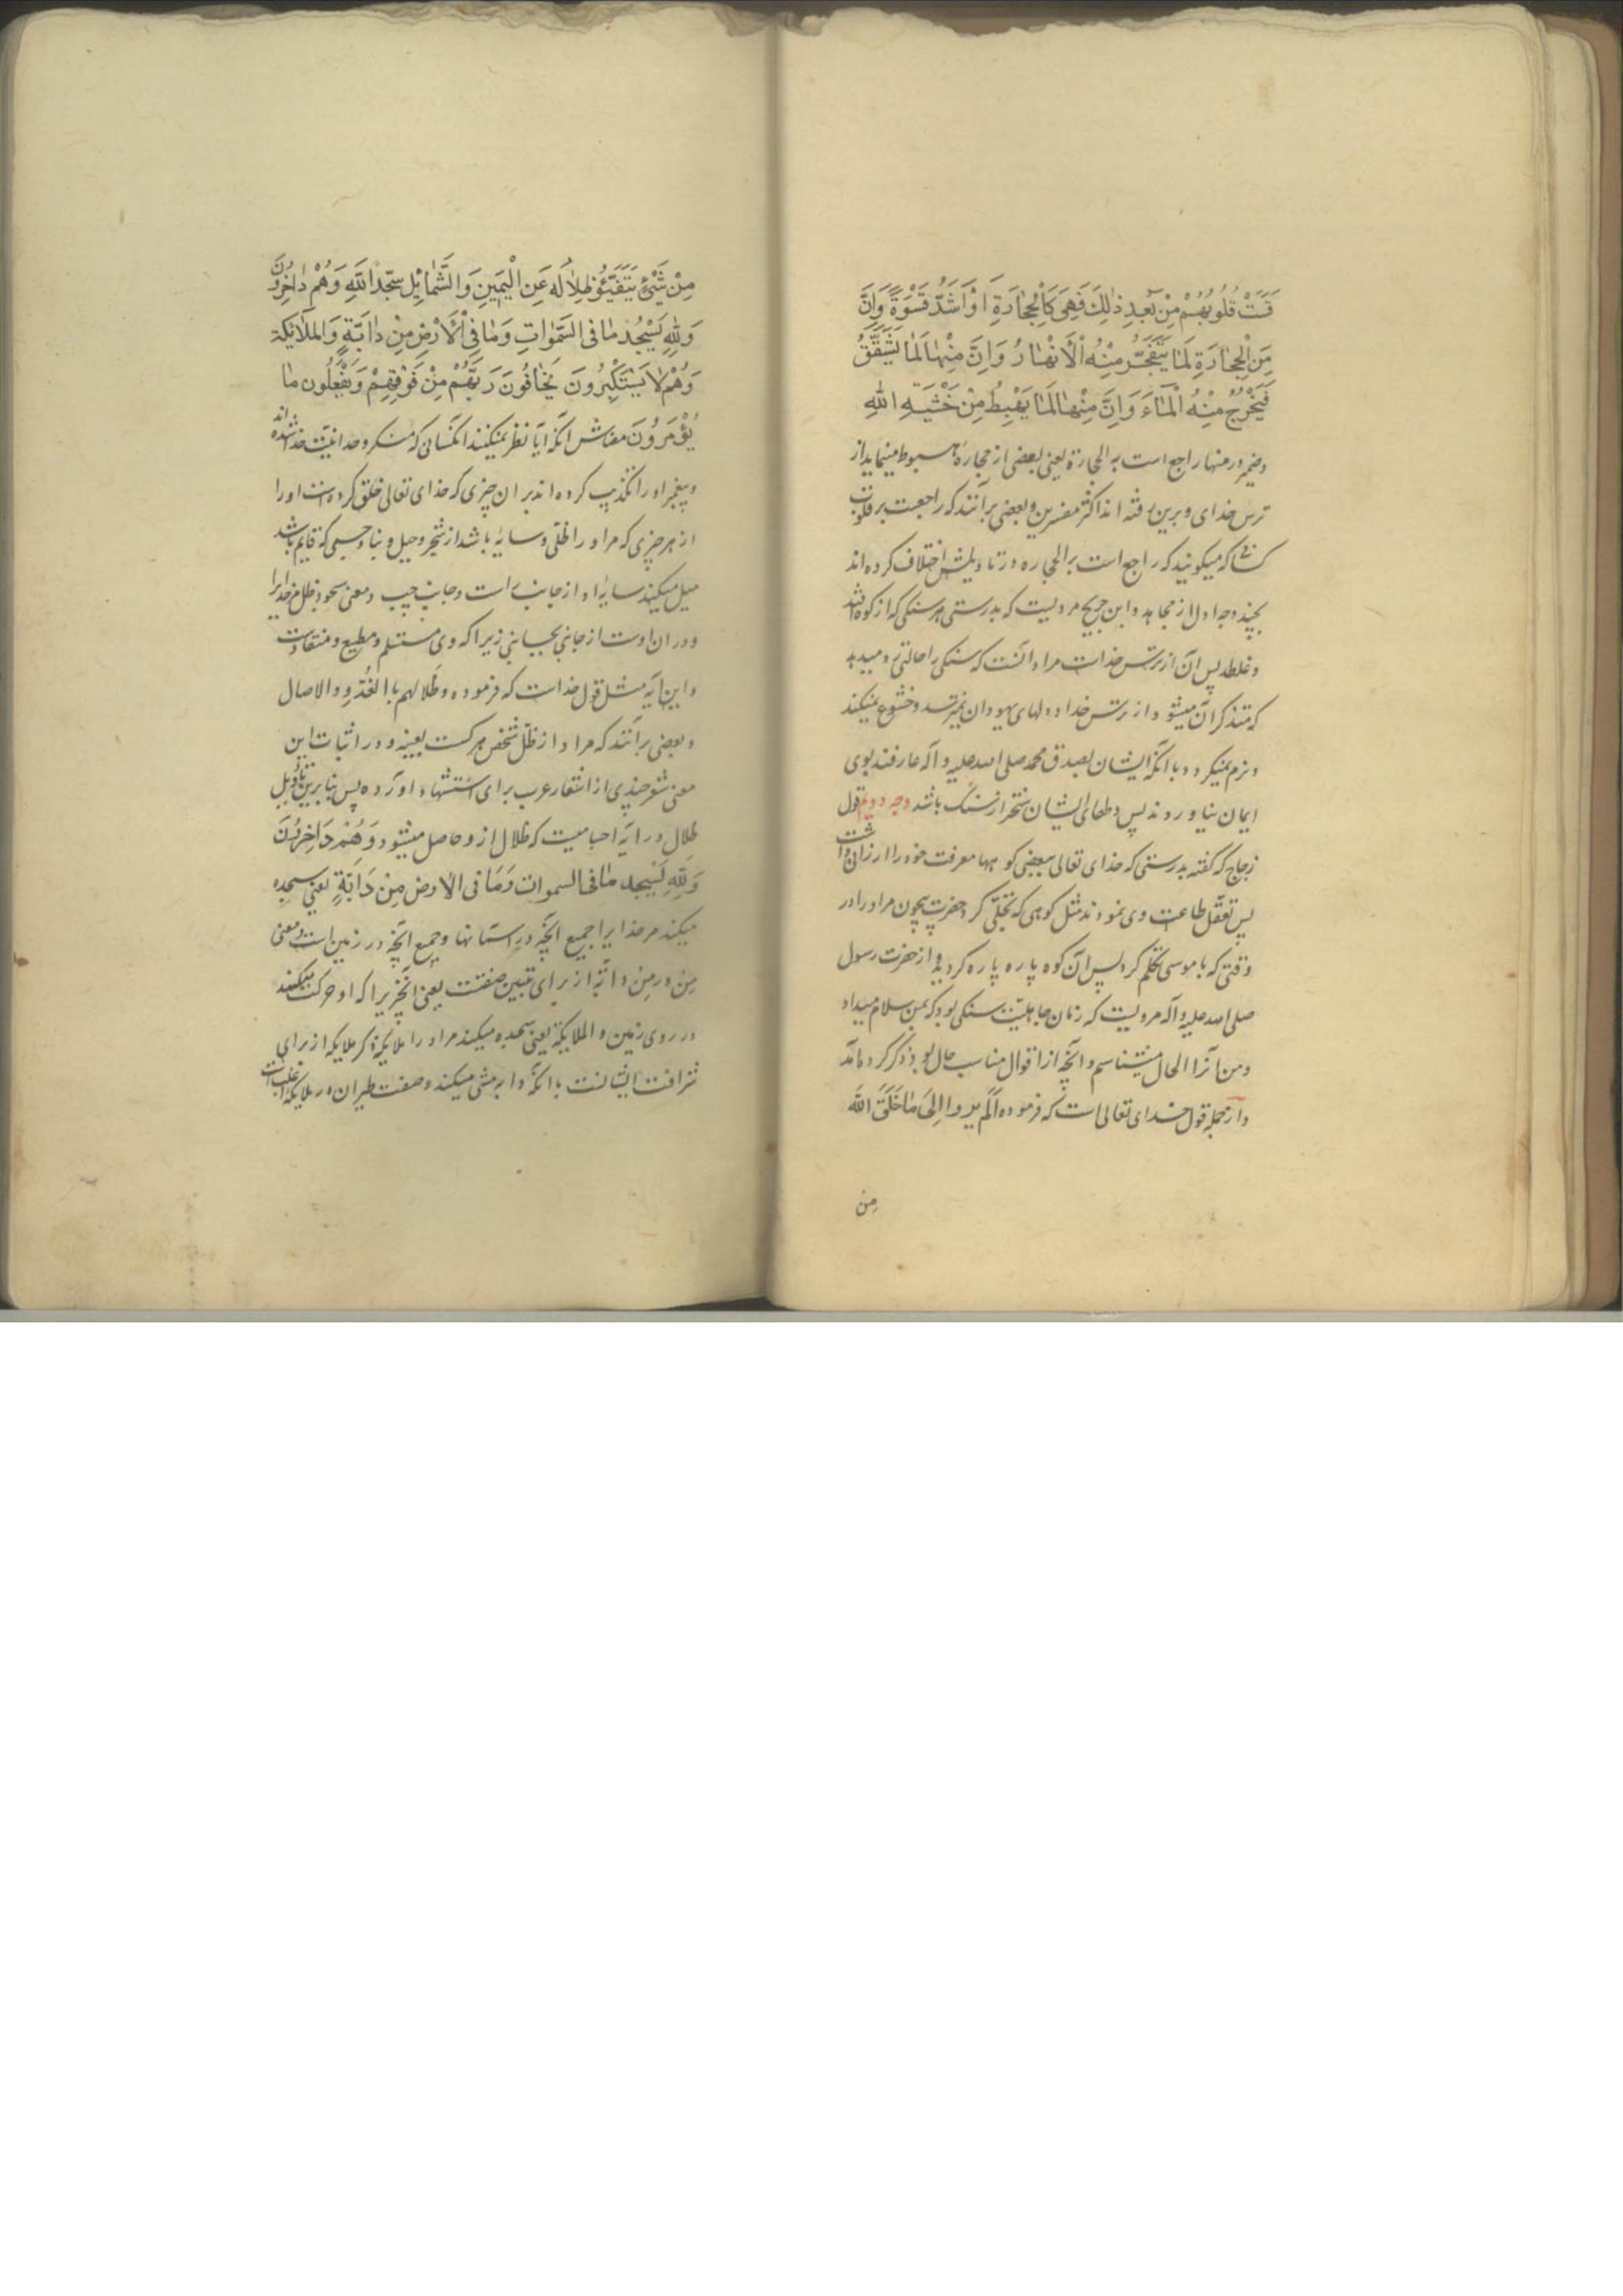 قَسَتْ قُلُوبُهُمْ مِنْ بَعْدِ ذٰلِكَ فَهِيَ كَالْحِجَارَةِ اَوْ اَشَدُّ قَسْوَةً وَاِنَّ
مِنَ الْحِجَارَةِ لَمَا يَتَفَجَّرُ مِنْهُ الْاَنْهَارُ وَاِنَّ مِنْهَا لَمَا يَشَّقَّقُ
فَيَخْرُجُ مِنْهُ الْمَاءَ وَاِنَّ مِنْهَا لَمَا يَهْبِطُ مِنْ خَشْيَةِ اللهِ
وضمیر در منها راجع است به الحجارة یعنی بعضی از حجاره هبوط مینماید از
ترس خدای و برین رفته اند اکثر مفسرین و بعضی برآنند که راجعست بر قلوب
کسانی که میکویند که راجع است بر الحجاره در تاویلش اختلاف کرده اند
بچند وجه اول از مجاهد و ابن جریح مرویست که بدرستی هر سنکی که از کوه افتد
و غلطد پس آن از ترس خداست مراد آنست که سنکی را حالتی رو میدهد
که متذکر آن میشود از ترس خدا و دلهای یهودان نمیترسد و خشوع نمیکند
و نرم نمیکردد با آنکه ایشان بصدق محمد صلی الله علیه و آله عارفند بوی
ایمان نیاوردند پس دلهای ایشان سختر از سنک باشد وجه دویم قول
زجاج که کفته بدرستی که خدای تعالی ببعضی کوهها معرفت خود را ارزانی داشت
پس تعقل طاعت وی نمودند مثل کوهی که تجلی کرد حضرت بیچون مر او را در
وقتی که با موسی تکلم کرد پس آن کوه پاره پاره کردید و از حضرت رسول
صلی الله علیه و آله مرویست که زمان جاهلیت سنکی بود که بمن سلام میداد
و من آنرا الحال میشناسم و آنچه از اقوال مناسب حال بود ذکر کرده آمد
و از جمله قول خدای تعالی است که فرموده اَلَم یروا اِلیٰ مٰا خَلَقَ اللّه
من
مِنْ شَيْئٍ يَتَفَيَّئُو ظِلاٰلُه عَنِ الْيَمِينِ وَالشَّمٰائِلِ سجّداً لِلّهِ وَهُمْ دٰاخِرُونَ
وَلِلّهِ يَسْجُدُ مٰا فِى السَّمٰوٰاتِ وَمٰا فِى الْاَرْضِ مِنْ دٰابَّةٍ وَالملَائِكَة
وَهُمْ لاٰ يَسْتَكْبِرُونَ يَخٰافُونَ رَبَّهُمْ مِنْ فَوْقِهِمْ وَيَفْعَلُون مٰا
يُؤْمَرُونَ معناش آنکه آیا نظر نمیکنند آنکسانی که منکر وحدانیت خدا شده اند
و پیغمبر او را تکذیب کرده اند بر آن چیزی که خدای تعالی خلق کرده است او را
از هر چیزی که مر او را ظلّی و سایهٔ باشد از شجر و جبل و بنا و جسمی که قایم باشد
میل میکند سایهٔ او از جانب راست و جانب چپ و معنی سجود ظل مر خدایرا
دوران اوست از جانبی بجانبی زیرا که وی مستسلم و مطیع و منقاد است
و این آیه مثل قول خداست که فرموده و ظلالهم بالغدو والاصال
و بعضی برآنند که مراد از ظلّ شخص هر کست بعینه و در اثبات این
معنی شعر چندی از اشعار عرب برای استشهاد آورده پس بنابرین تاویل
ظلال در آیه اجسامیست که ظلال از و حاصل میشود وَهُمْ دَاخِرُونَ
وَلِلّهِ يَسْجد مٰا فى السموات وَمَا فى الارض مِنْ دَابَّةٍ یعنی سجده
میکند مر خدایرا جمیع آنچه در آسمانها و جمیع آنچه در زمین است و معنی
مِن در مِن دابّة از برای تبیین صفتست یعنی آنچیزیرا که او حرکت میکند
در روی زمین و الملایکة یعنی سجده میکند مر او را ملایکه ذکر ملایکه از برای
شرافت ایشانست با آنکه دابه مشی میکند و صفت طیران در ملایکه اغلب است